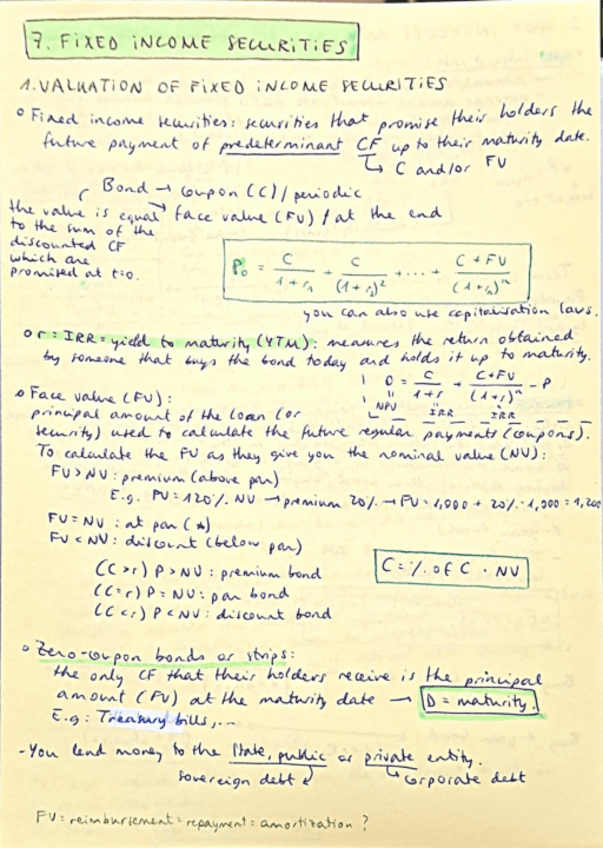 7. FIXED INCOME SECURITIES
1. VALUATION OF FIXED INCOME SECURITIES
° Fixed income securities: securities that promise their holders the
future payment of predeterminant CF up to their maturity date.
↳ C and/or FU
Bond → coupon (C) / periodic
→ face value (FU) / at the end
the value is equal
to the sum of the
discounted CF
which are
promised at t=0.
P₀ = C/(1+r₁) + C/(1+r₂)² + ... + (C+FU)/(1+rₙ)ⁿ
you can also use capitalisation laws.
° r = IRR = yield to maturity (YTM): measures the return obtained
by someone that buys the bond today and holds it up to maturity.
0 = C/(1+r) + (C+FU)/(1+r)ⁿ - P
NPV IRR IRR
° Face value (FU):
principal amount of the loan (or
security) used to calculate the future regular payments (coupons).
To calculate the FU as they give you the nominal value (NU):
FU > NU: premium (above par)
E.g. FU = 120% NU → premium 20% → FU = 1,000 + 20% · 1,000 = 1,200
FU = NU : at par (*)
FU < NU : discount (below par)
C = % of C · NU
(C > r) P > NU : premium bond
(C = r) P = NU : par bond
(C < r) P < NU : discount bond
° Zero-coupon bonds or strips:
the only CF that their holders receive is the principal
amount (FU) at the maturity date → D = maturity.
E.g: Treasury bills,...
- You lend money to the State, public or private entity.
sovereign debt ↙ ↳ corporate debt
FU = reimbursement = repayment = amortization ?